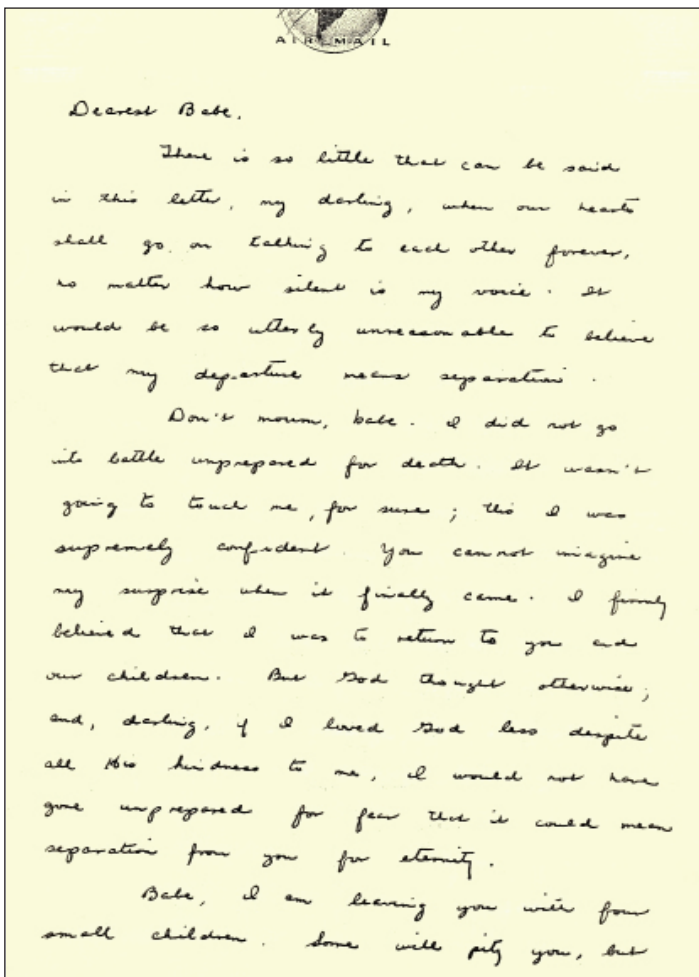 AIR MAIL
Dearest Babe,
There is so little that can be said
in this letter, my darling, when our hearts
shall go on talking to each other forever,
no matter how silent is my voice. It
would be so utterly unreasonable to believe
that my departure means separation.
Don't mourn, babe. I did not go
into battle unprepared for death. It wasn't
going to touch me, for sure; this I was
supremely confident. You cannot imagine
my surprise when it finally came. I firmly
believed that I was to return to you and
our children. But God thought otherwise;
and, darling, if I loved God less despite
all His kindness to me, I would not have
gone unprepared for fear that it could mean
separation from you for eternity.
Babe, I am leaving you with four
small children. Some will pity you, but